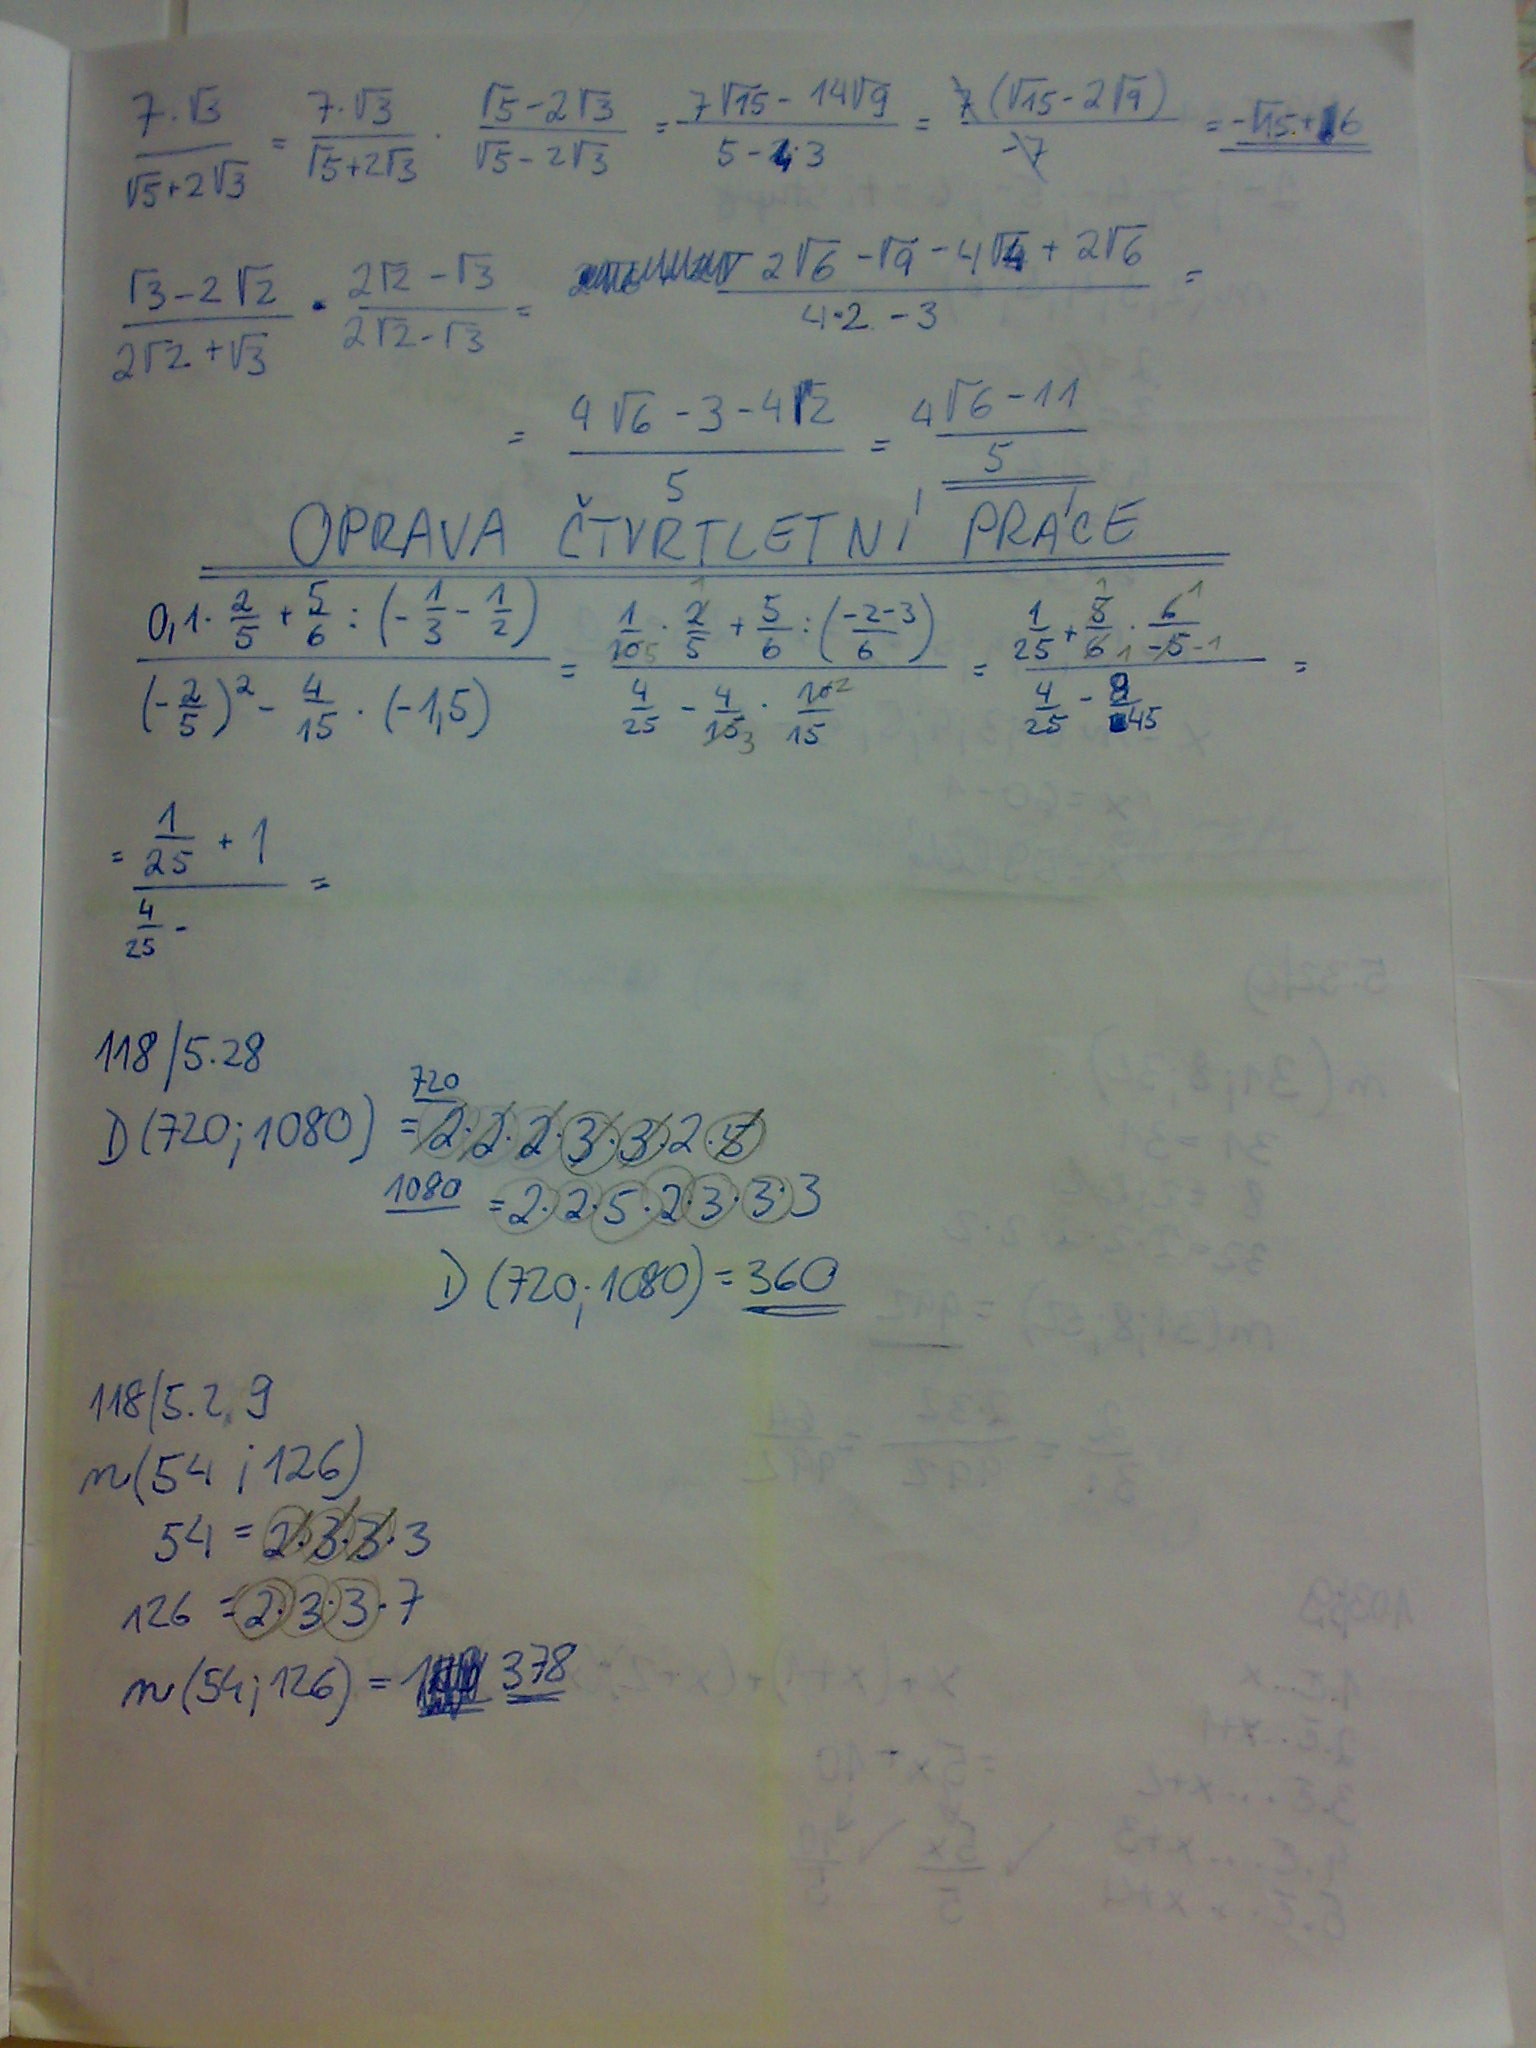 7·√3/(√5+2√3) = 7·√3/(√5+2√3) · (√5-2√3)/(√5-2√3) = (7√15-14√9)/(5-4·3) = 7(√15-2√9)/-7 = -√15+6
(√3-2√2)/(2√2+√3) · (2√2-√3)/(2√2-√3) = (2√6-√9-4√4+2√6)/(4·2-3) =
= (4√6-3-4√2)/5 = (4√6-11)/5
OPRAVA ČTVRTLETNÍ PRÁCE
(0,1·2/5+5/6:(-1/3-1/2))/((-2/5)²-4/15·(-1,5)) = (1/10·2/5+5/6:((-2-3)/6))/(4/25-4/15·10/15) = (1/25+5/6·6/-5)/(4/25-8/45) =
= (1/25+1)/(4/25-) =
118/5.28
720
D(720;1080) = 2·2·2·3·3·2·5
1080 = 2·2·5·2·3·3·3
D(720;1080) = 360
118/5.2.9
n(54;126)
54 = 2·3·3·3
126 = 2·3·3·7
n(54;126) = 378